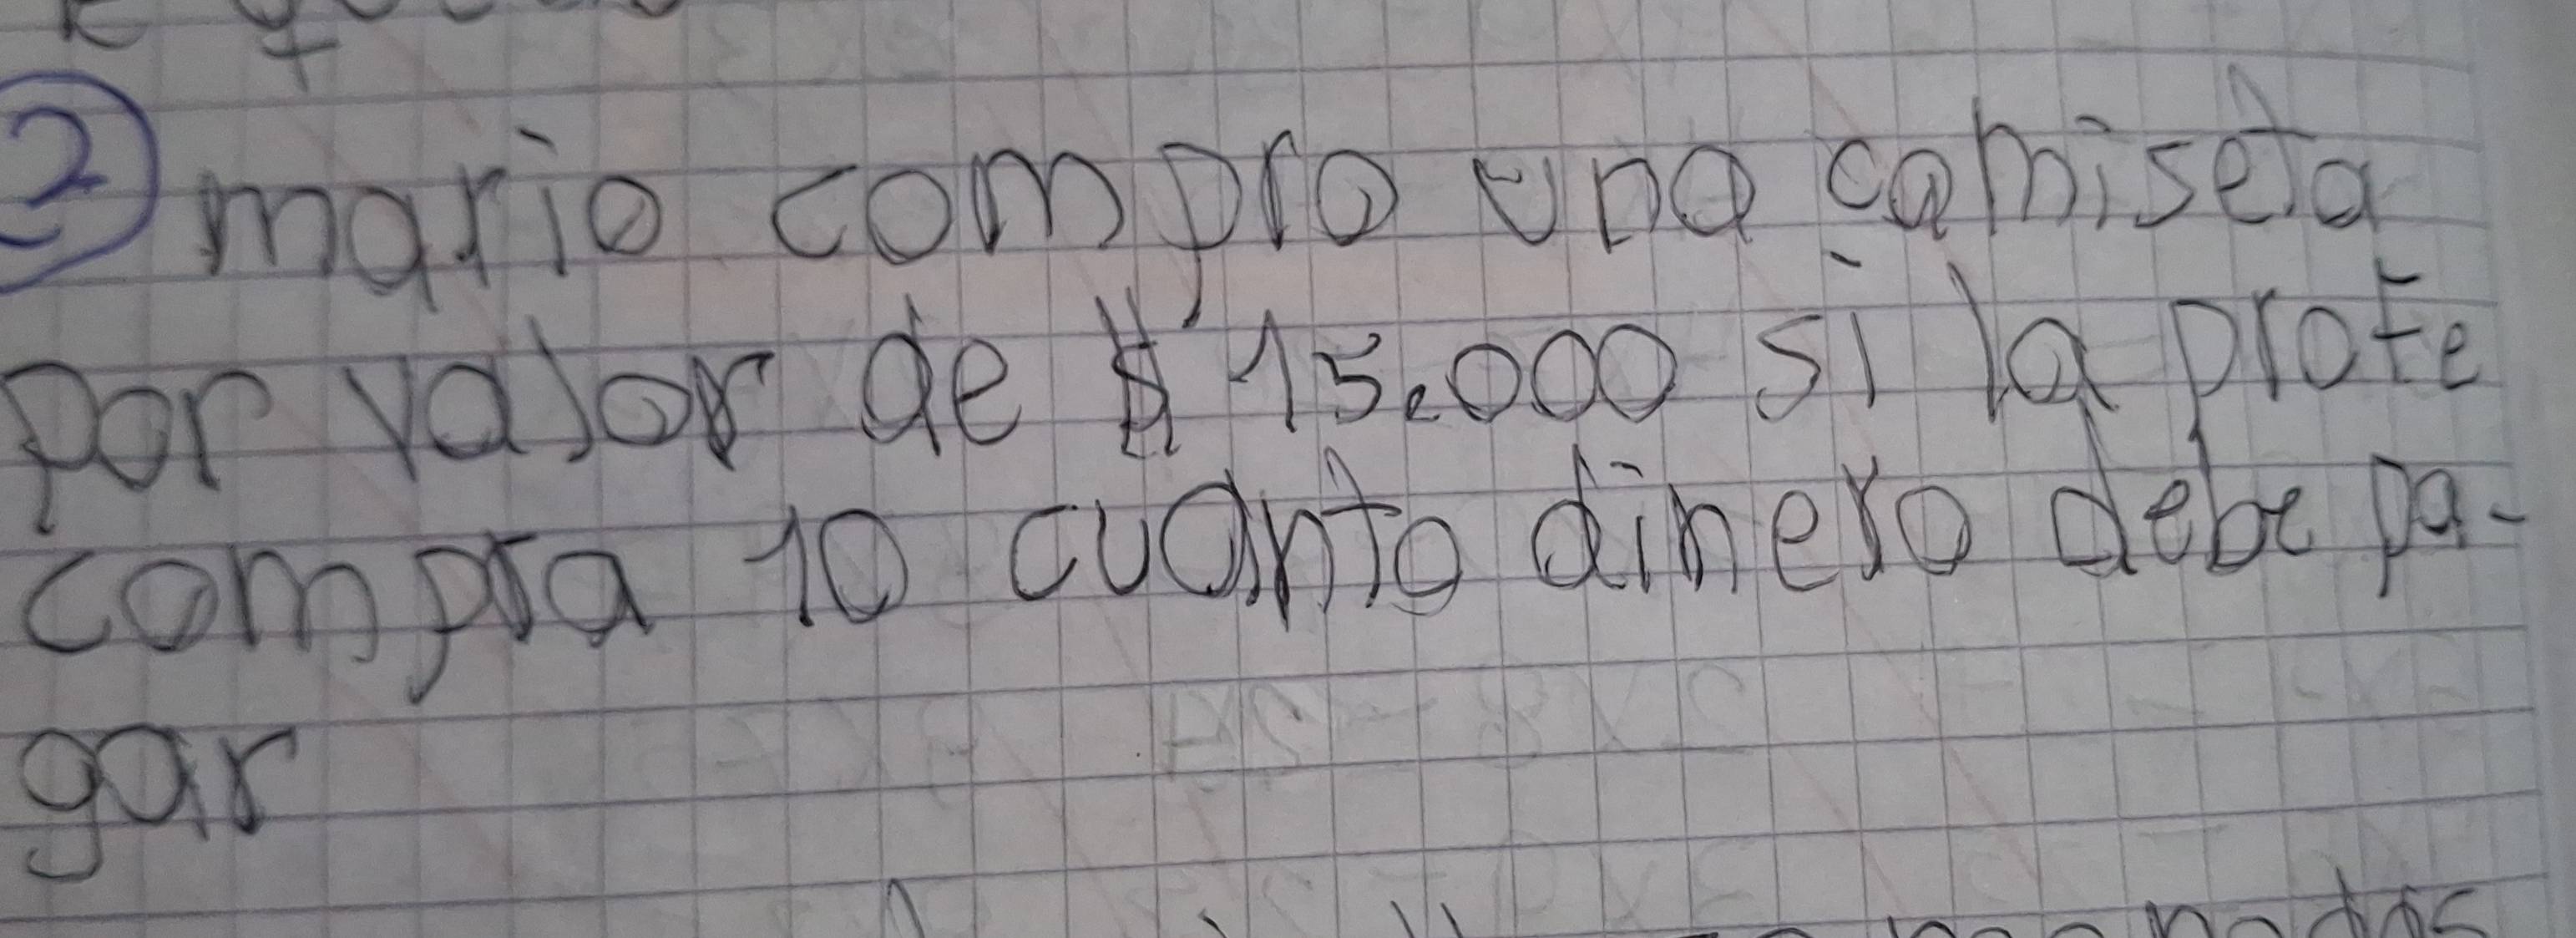 2 mario compro una camiseta
por valor de $ 15.000 si la profe
compra 10 cuanto dinero debe pa-
gar